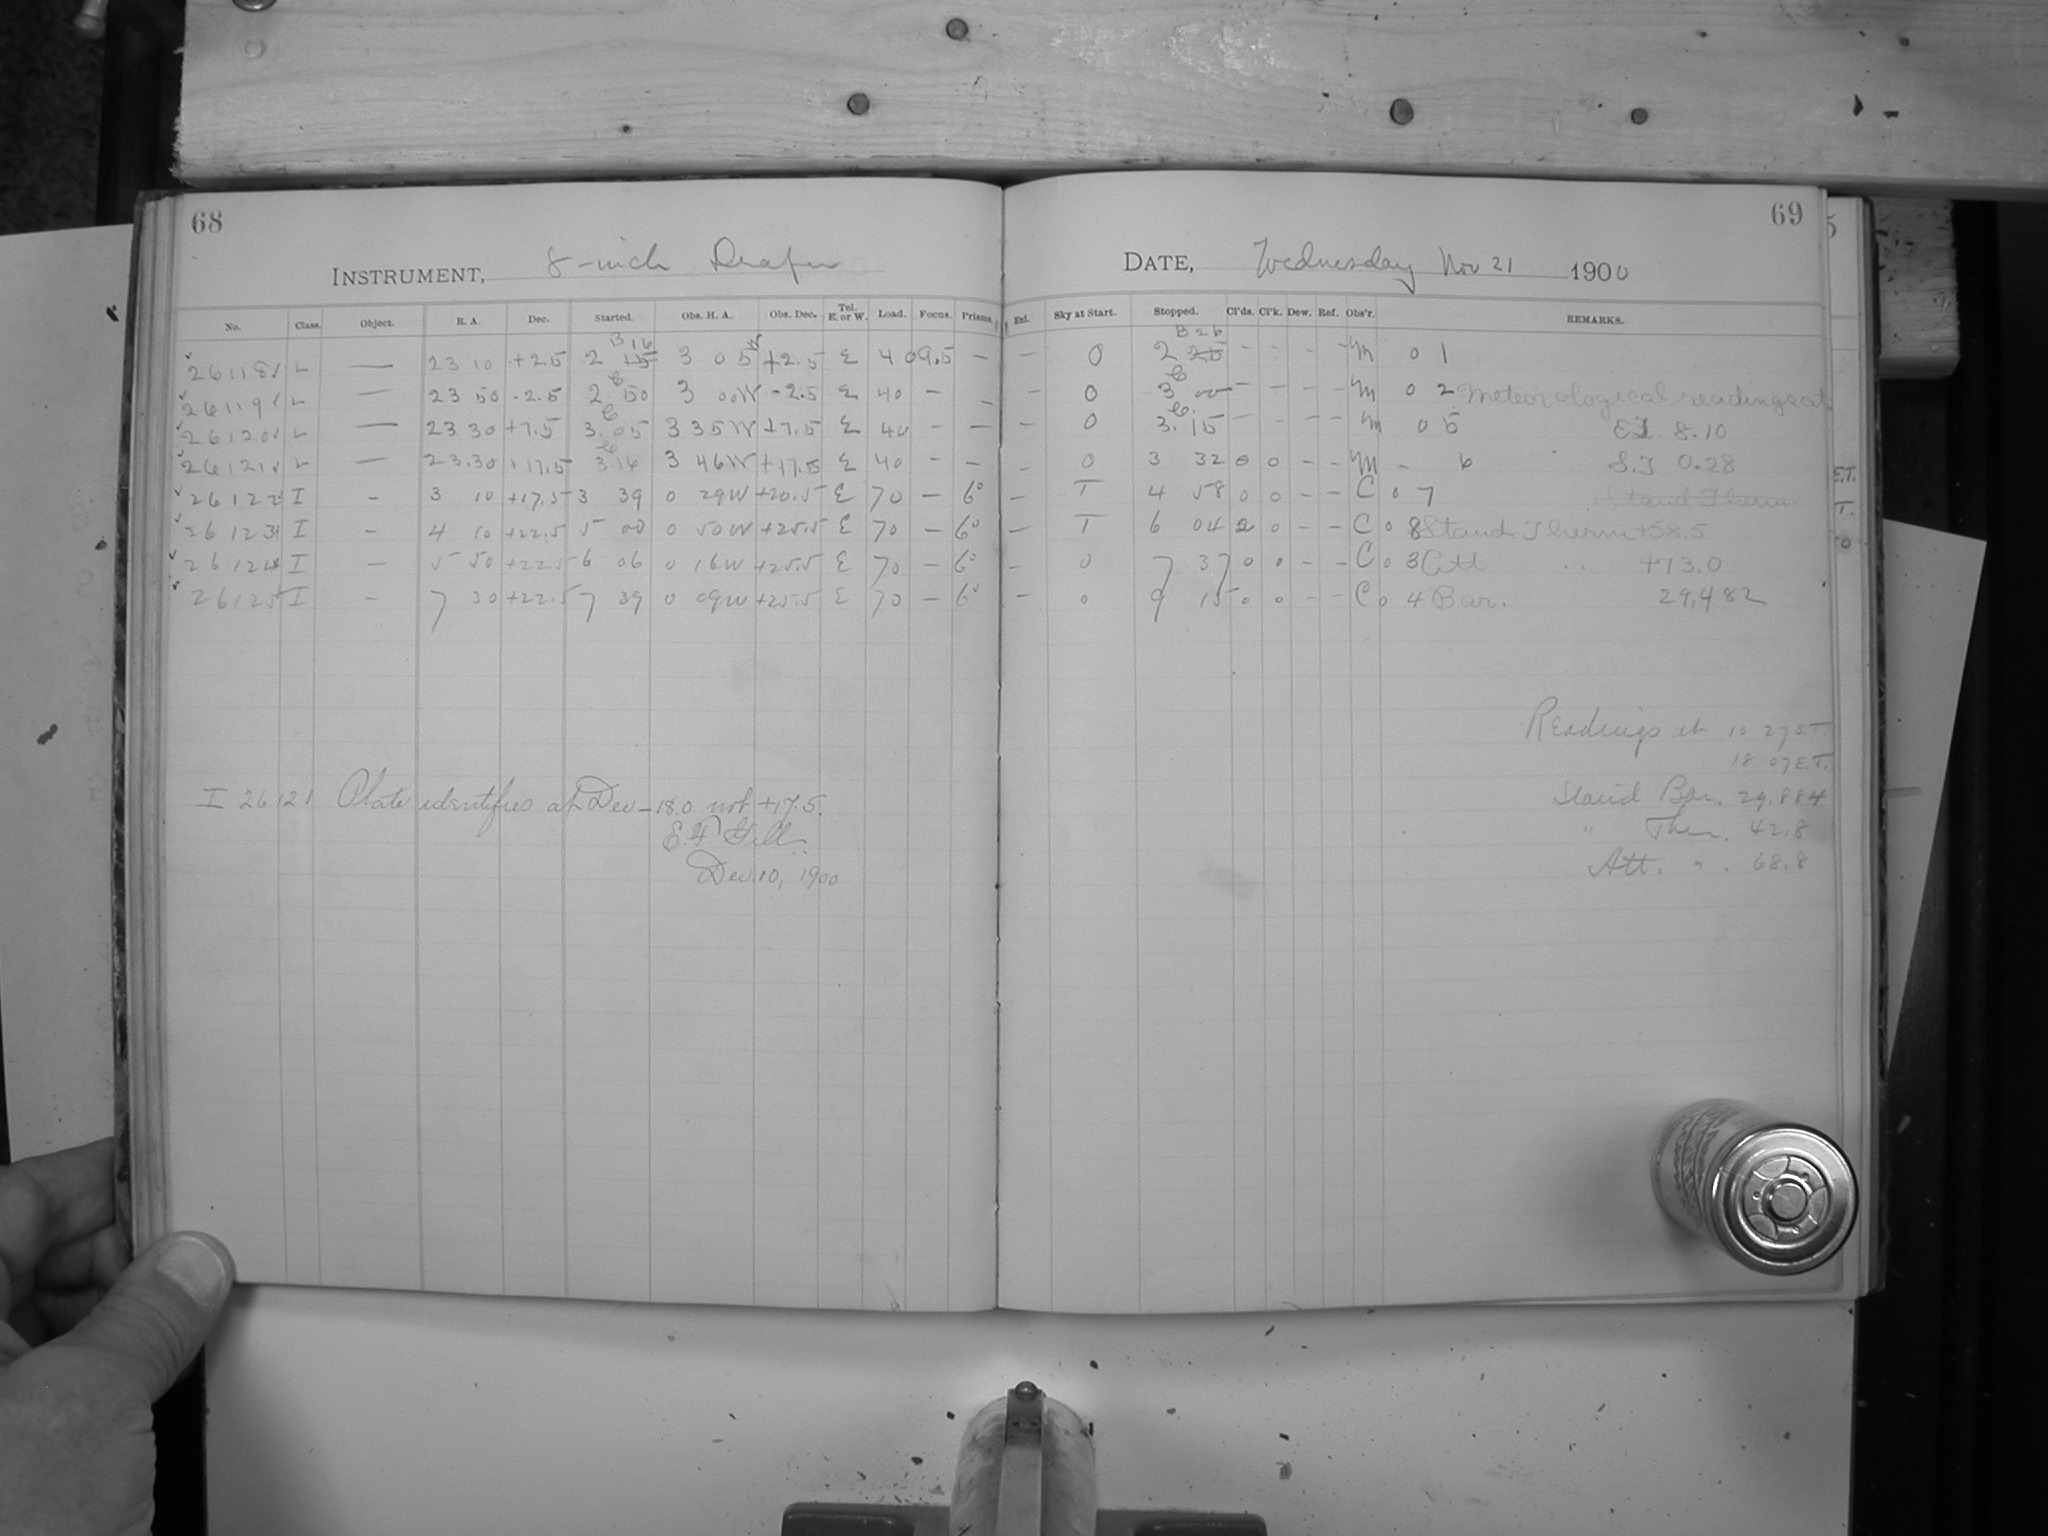 68
INSTRUMENT, 8-inch Draper
No. Class. Object. R. A. Dec. Started. Obs. H. A. Obs. Dec. Tel. E. or W. Load. Focus. Prisms.
26118 L — 23 10 +2.5 2 15 B 16 3 05 W +2.5 E 40 9.5 —
26119 L — 23 50 -2.5 2 50 C 3 00 W -2.5 E 40 — —
26120 L — 23 30 +7.5 3. 05 C 3 35 W +7.5 E 40 — —
26121 L — 23.30 +17.5 3.16 C 3 46 W +17.5 E 40 — —
26122 I — 3 10 +17.5 3 39 0 29 W +20.5 E 70 — 6°
26123 I — 4 10 +22.5 5 00 0 50 W +25.5 E 70 — 6°
26124 I — 5 50 +22.5 6 06 0 16 W +25.5 E 70 — 6°
26125 I — 7 30 +22.5 7 39 0 09 W +25.5 E 70 — 6°
I 26121 Plate identifies at Dec -18.0 not +17.5.
E. F. Gill.
Dec. 10, 1900
69
DATE, Wednesday Nov 21 1900
Enl. Sky at Start. Stopped. Cl'ds. Cl'k. Dew. Ref. Obs'r. REMARKS.
— 0 2 25 B 26 — — — — M 0 1
— 0 3 00 C — — — — M 0 2 Meteorological readings at
— 0 3. 15 C — — — — M 0 5 E.T 8.10
— 0 3 32 0 0 — — M — 6 S.T 0.28
— T 4 58 0 0 — — C 0 7 Stand Therm
— T 6 04 2 0 — — C 0 8 Stand. Therm +58.5
— 0 7 37 0 0 — — C 0 3 Att " +73.0
— 0 9 15 0 0 — — C 0 4 Bar. 29,482
Readings at 10 27 S.T.
18 07 E.T.
Stand Bar. 29.884
" Ther. 42.8
Att. " . 68.8
5
E.T.
T.
0